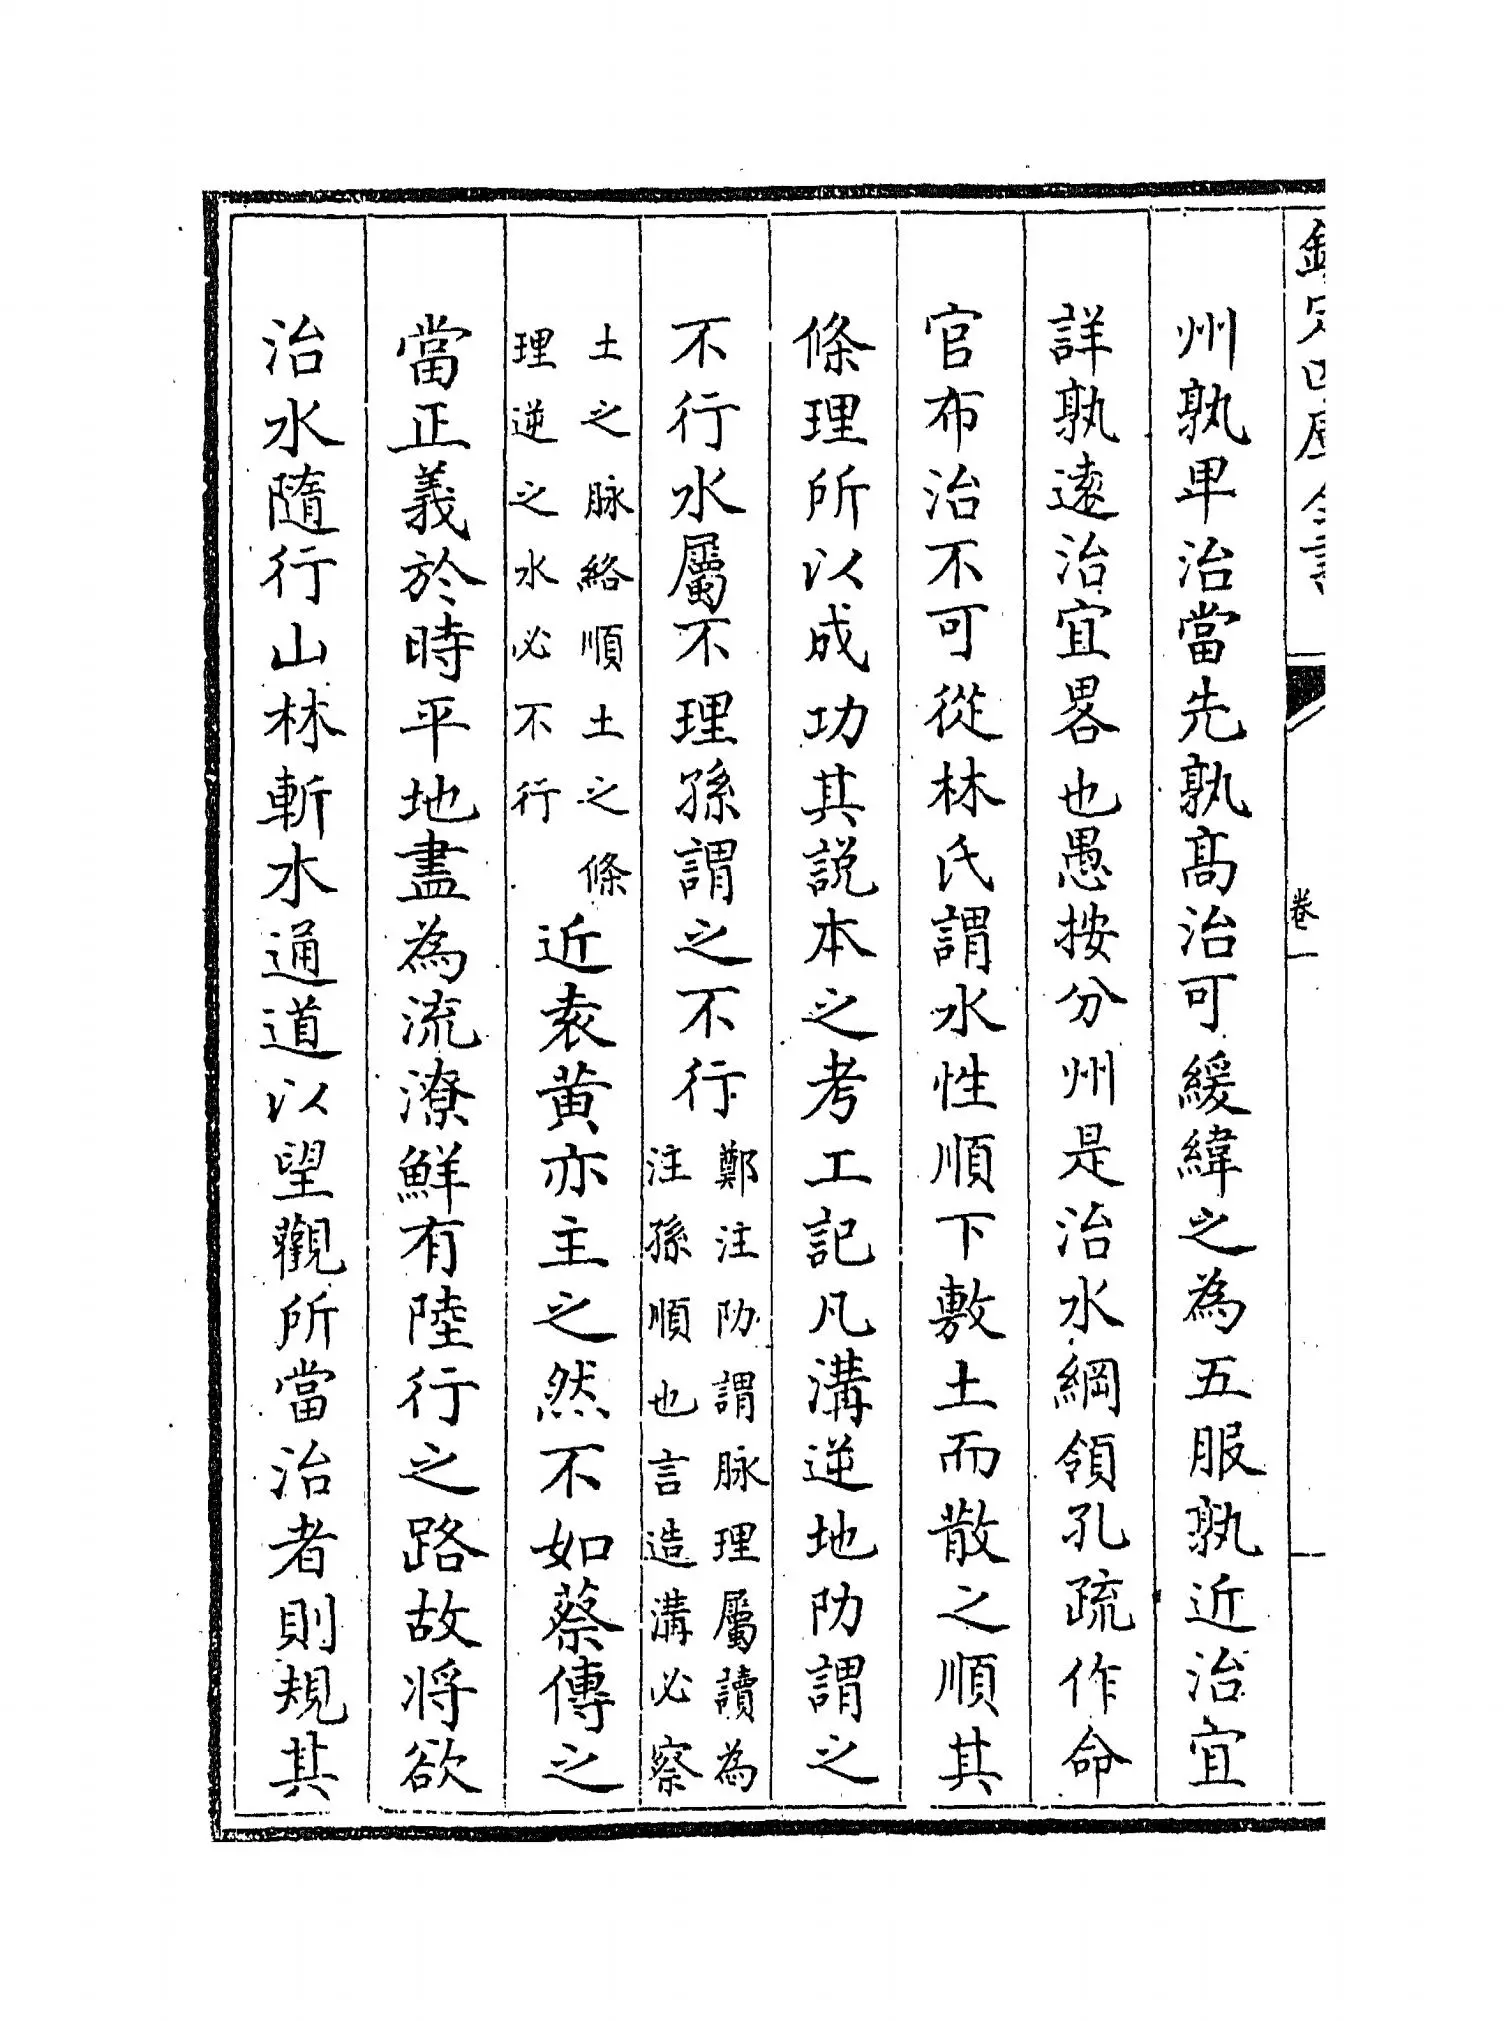 欽定四庫全書
卷一
州孰卑治當先孰髙治可緩緯之為五服孰近治宜
詳孰遠治宜畧也愚按分州是治水綱領孔疏作命
官布治不可從林氏謂水性順下敷土而散之順其
條理所以成功其説本之考工記凡溝逆地阞謂之
不行水屬不理孫謂之不行鄭注阞謂脉理屬讀為
注孫順也言造溝必察
土之脉絡順土之條
理逆之水必不行近袁黄亦主之然不如蔡傳之
當正義於時平地盡為流潦鮮有陸行之路故将欲
治水隨行山林斬水通道以望觀所當治者則規其